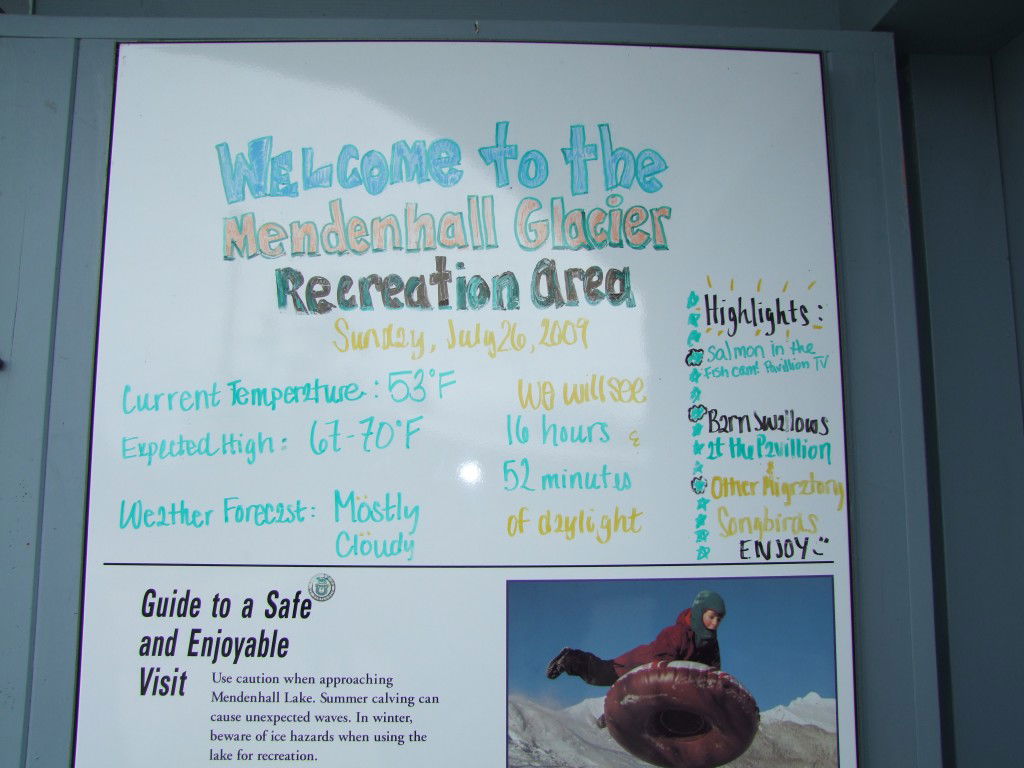 WELCOME to the
Mendenhall Glacier
Recreation Area
Sunday, July 26, 2009
Current Temperature: 53°F
Expected High: 67-70°F
Weather Forecast: Mostly
Cloudy
We will see
16 hours &
52 minutes
of daylight
Highlights:
Salmon in the
Fish cam! Pavillion TV
Barn Swallows
at the Pavillion
Other Migratory
Songbirds
ENJOY
Guide to a Safe
and Enjoyable
Visit
Use caution when approaching
Mendenhall Lake. Summer calving can
cause unexpected waves. In winter,
beware of ice hazards when using the
lake for recreation.